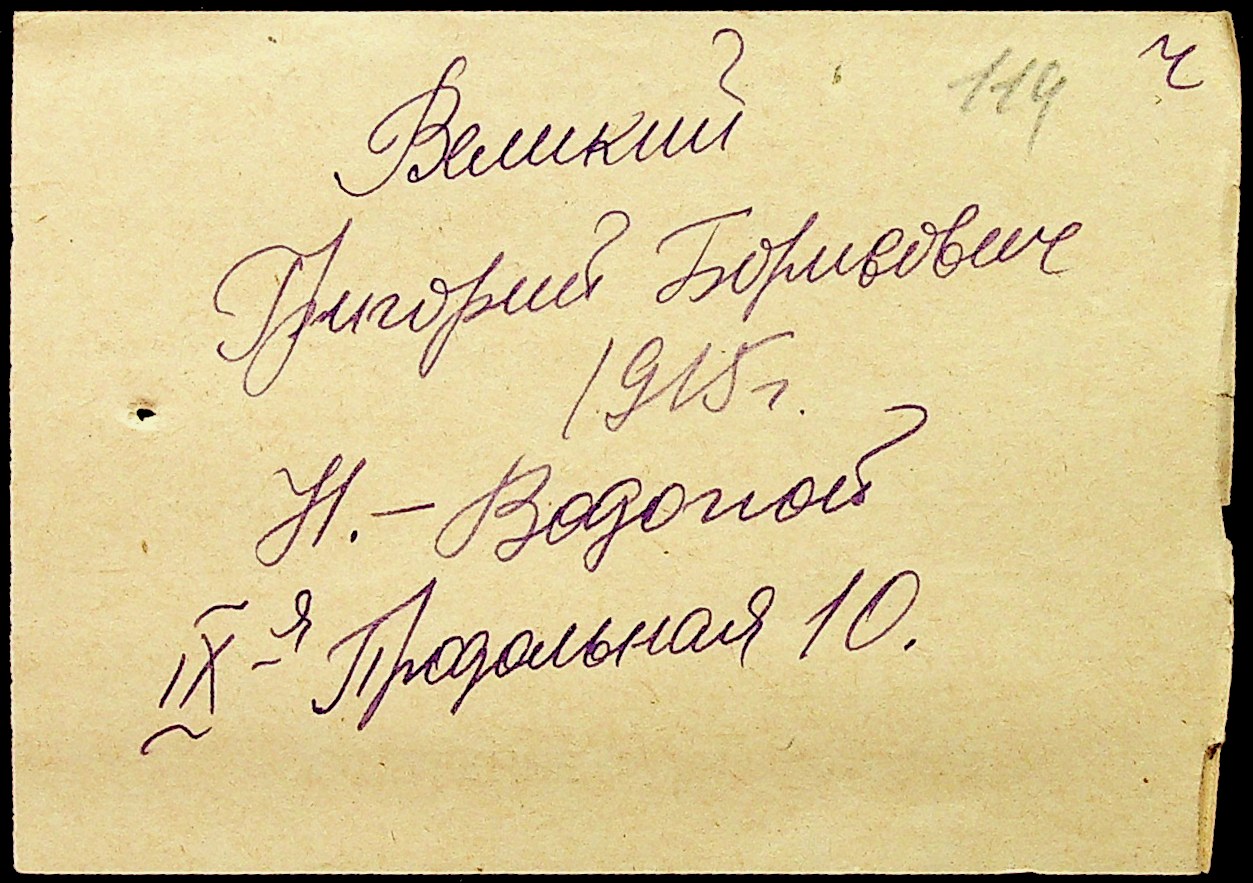 119 ч
Великий
Григорий Борисович
1915 г.
Н. - Водопой
IX-я Продольная 10.